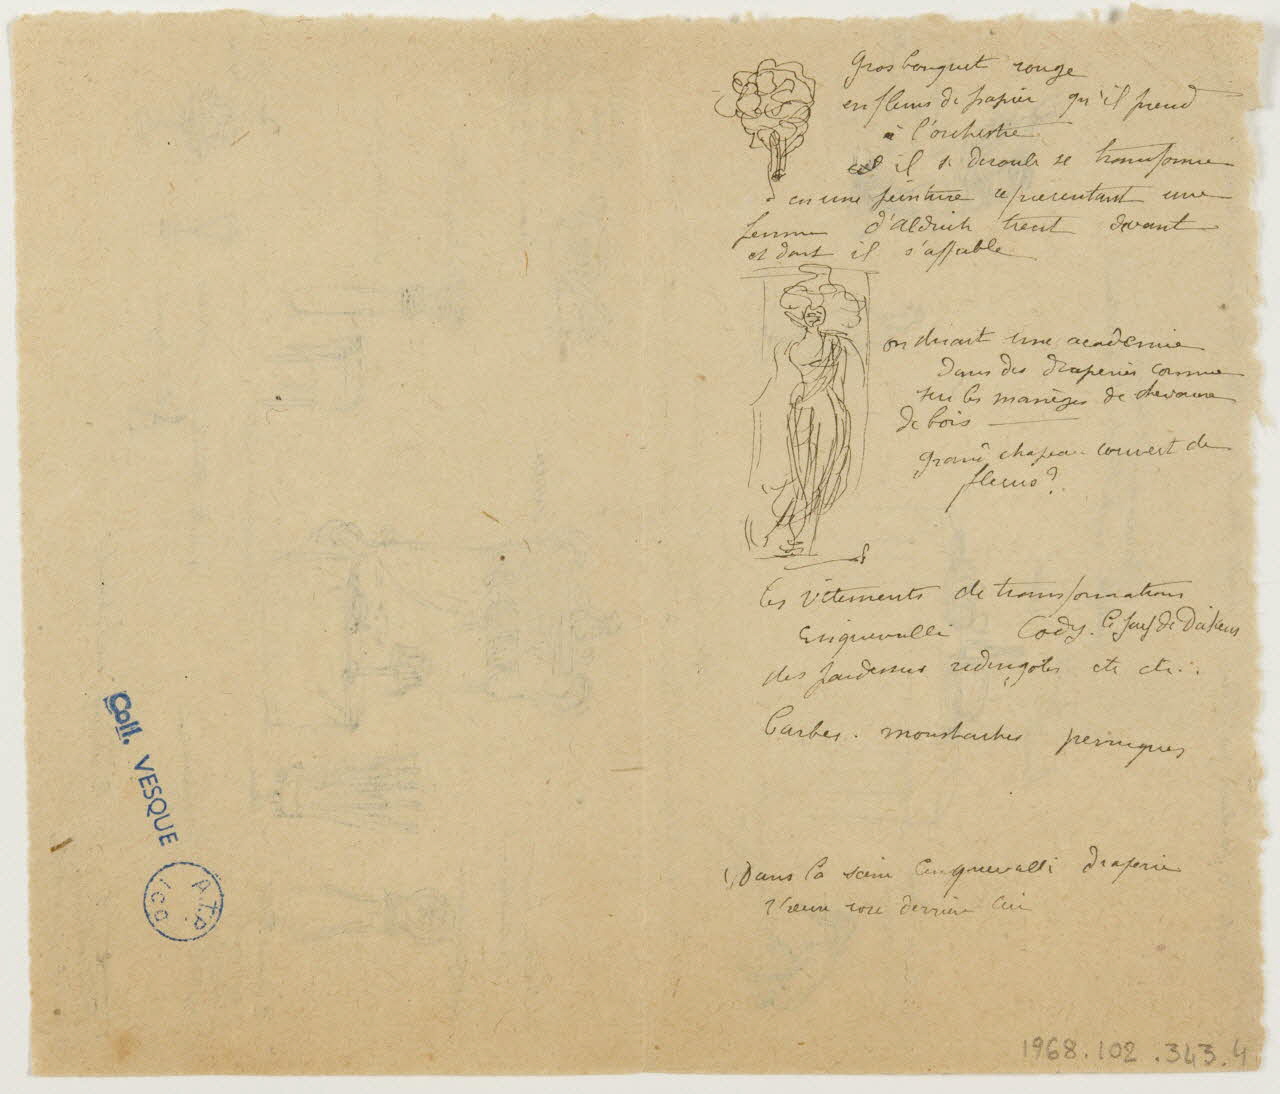 Gros bouquet rouge
en fleurs de papier qu'il prend
à l'orchestre
il se deroule se transforme
en une peinture representant une
femme d'Aldrich tient devant
et dont il s'affuble
on dirait une academie
dans des draperies comme
sur les manèges de chevaux
de bois
grand chapeau couvert de
fleurs?
les vêtements de transformations
Cinquevalli Cody. le juif de Dickens
des pardessus redingotes etc etc..
Barbes. moustaches perruques
Dans la scène Cinquevalli draperie
rose derrière lui
Coll. VESQUE
A.T.P.
ICO
1968.102.343.4